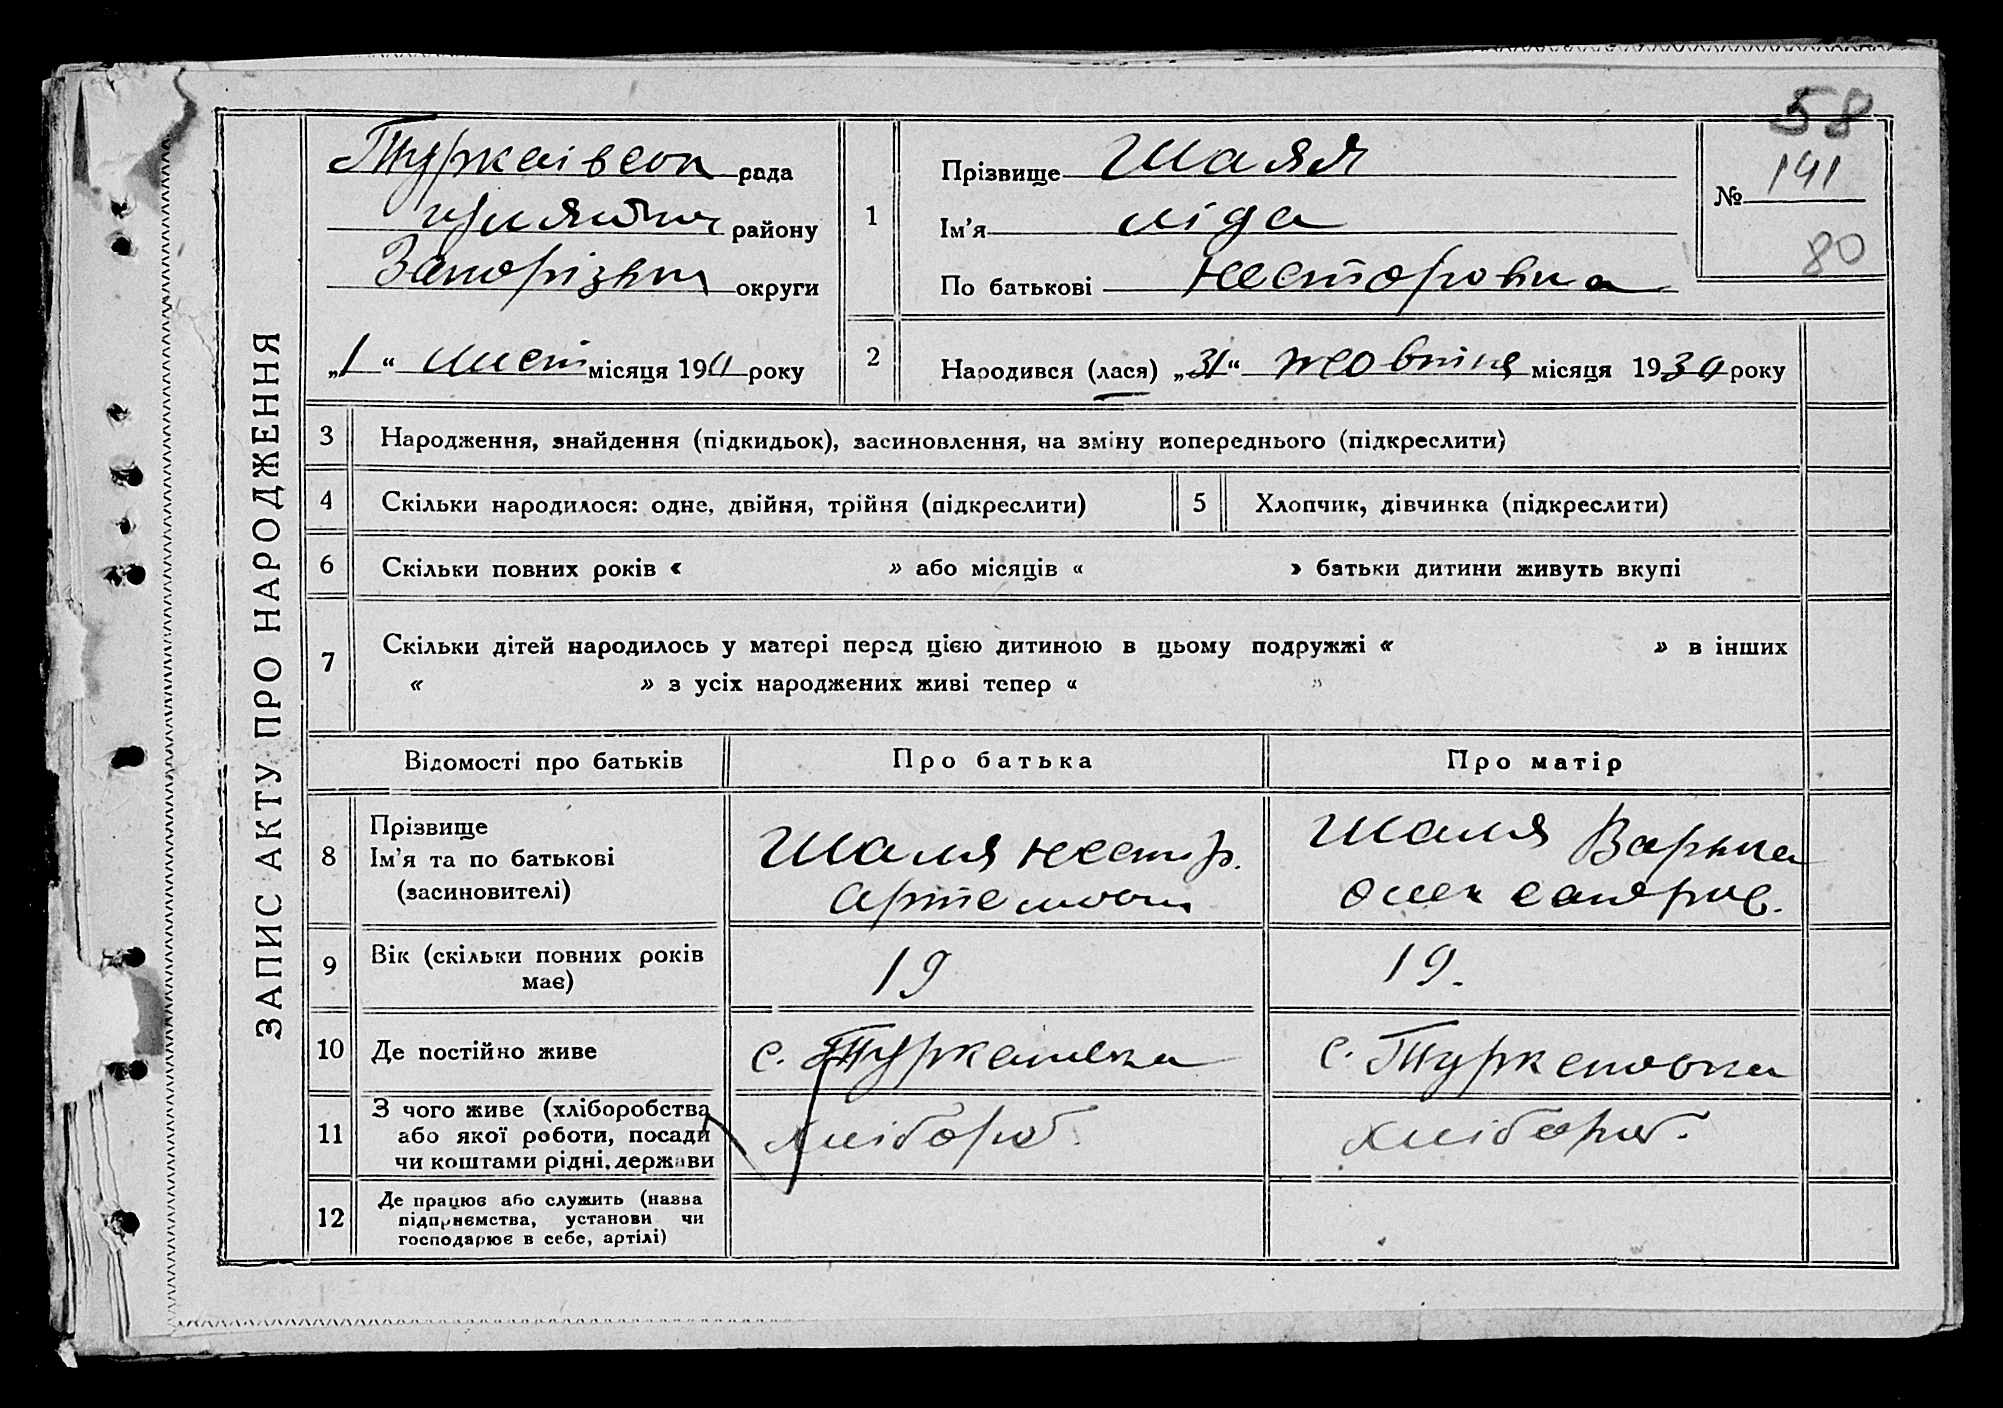 58
ЗАПИС АКТУ ПРО НАРОДЖЕННЯ
рада
району
округи
„1“ лист місяця 19 року
1
Прізвище Шаля
Ім'я Ліда
По батькові Несторовна
№ 141
80
2
Народився (лася) „31“ жовтня місяця 1930 року
3 Народження, знайдення (підкидьок), засиновлення, на зміну попереднього (підкреслити)
4 Скільки народилося: одне, двійня, трійня (підкреслити)
5 Хлопчик, дівчинка (підкреслити)
6 Скільки повних років « » або місяців « » батьки дитини живуть вкупі
7 Скільки дітей народилось у матері перед цією дитиною в цьому подружжі « » в інших
« » з усіх народжених живі тепер « »
Відомості про батьків
Про батька
Про матір
8 Прізвище
Ім'я та по батькові
(засиновителі)
Шаля Нестр.
Шаля
9 Вік (скільки повних років
має)
19
19.
10 Де постійно живе
с. Туркенівка
с. Туркеновка
11 З чого живе (хліборобства
або якої роботи, посади
чи коштами рідні, держави
хлібороб.
хлібороб.
12 Де працює або служить (назва
підприємства, установи чи
господарює в себе, артілі)